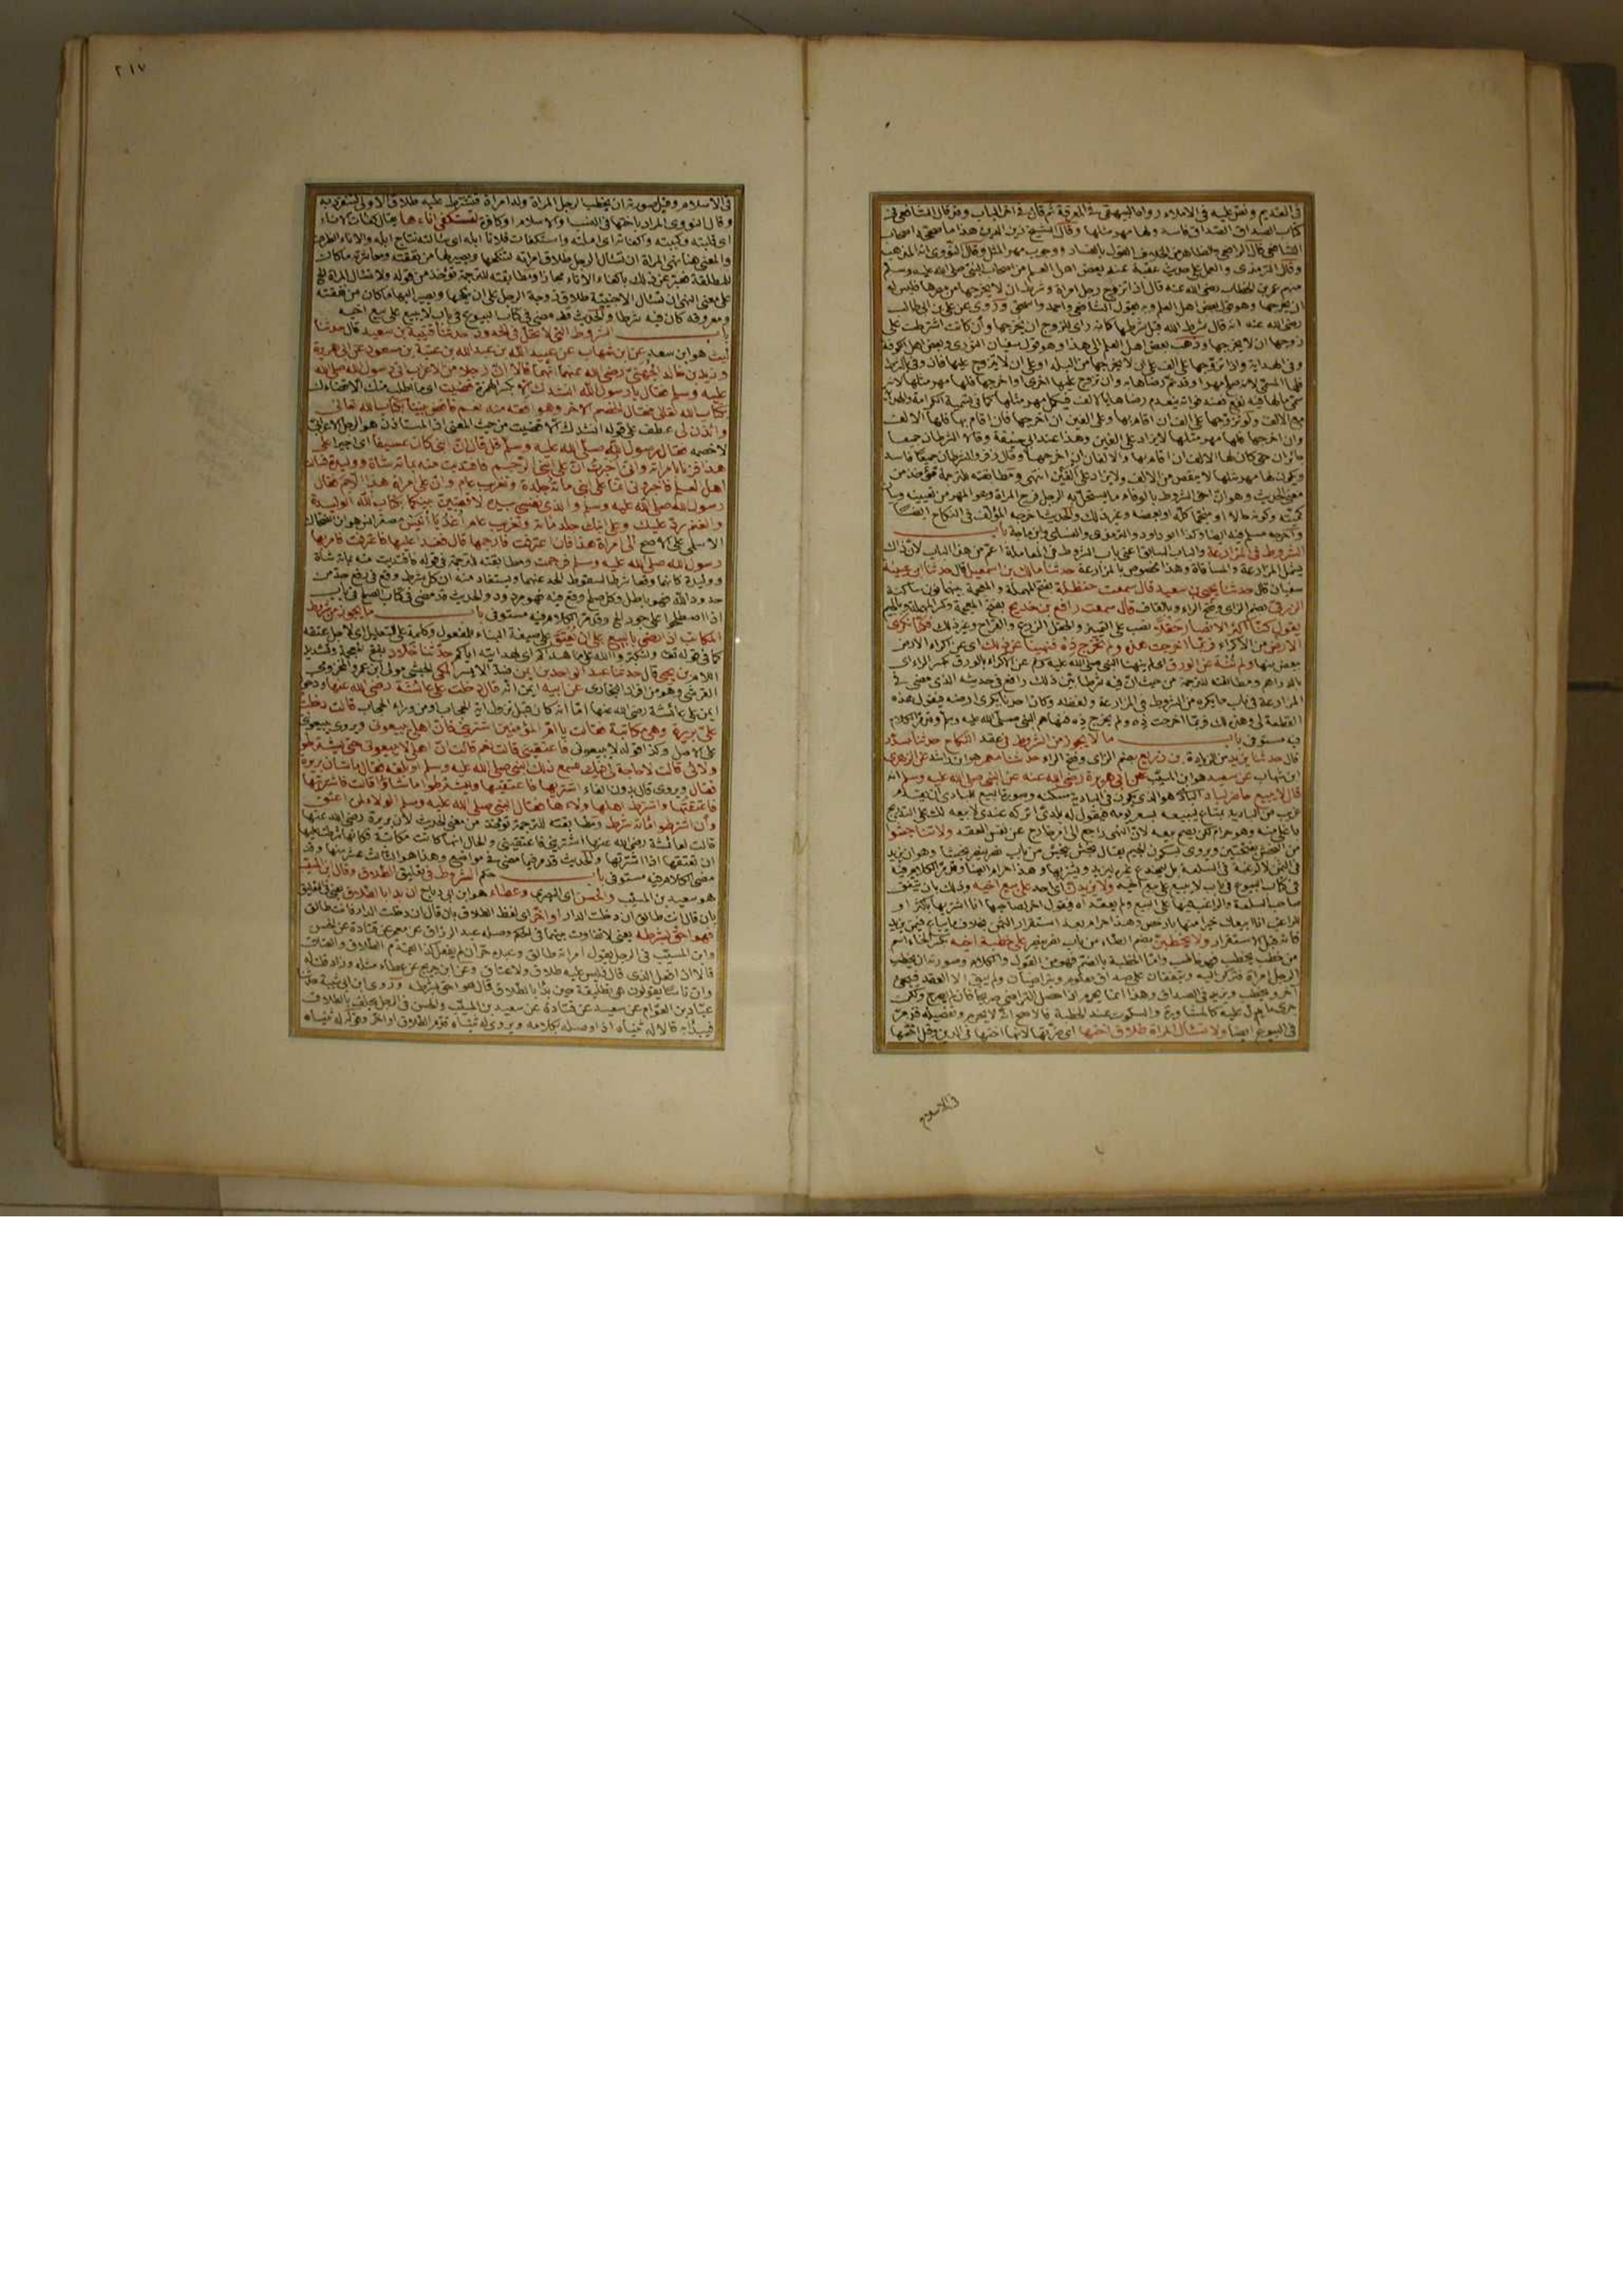 ٢١٧
في القديم ونص عليه في الاملاء رواه البيهقي في المعرفة ثم قال في اخر الباب وقد قال الشافعي في
كتاب الصداق الصداق فاسد ولها مهر مثلها وقال الشيخ زين الدين هذا ما صححه اصحاب
الشافعي قال الرافعي والظاهر من الخلاف القول بالفساد ووجوب مهر المثل وقال النووي انه المذهب
وقال الترمذي والعمل على حديث عقبة عند بعض اهل العلم من اصحاب النبي صلى الله عليه وسلم
منهم عمر بن الخطاب رضي الله عنه قال اذا تزوج رجل امراة وشرط ان لا يخرجها من مصرها فليس له
ان يخرجها وهو قول بعض اهل العلم وبه يقول الشافعي واحمد واسحق وروي عن علي بن ابي طالب
رضي الله عنه انه قال شرط الله قبل شرطها كانه راى للزوج ان يخرجها وان كانت اشترطت على
زوجها ان لا يخرجها وذهب بعض اهل العلم الى هذا وهو قول سفيان الثوري وبعض اهل الكوفة
وفي الهداية واذا تزوجها على الف على ان لا يخرجها من البلد او على ان لا يتزوج عليها فان وفى بالشرط
فلها المسمى لانه صلح مهرا وقد تم رضاها به وان تزوج عليها اخرى او اخرجها فلها مهر مثلها لانه
سمى ما لها فيه نفع فعند فواته ينعدم رضاها بالالف فيكمل مهر مثلها كما في تسمية الكرامة والهدية
مع الالف ولو تزوجها على الف ان اقام بها وعلى الفين ان اخرجها فان اقام بها فلها الالف
وان اخرجها فلها مهر مثلها لا يزاد على الفين وهذا عند ابي حنيفة وقالا الشرطان جميعا
جائزان حتى كان لها الالف ان اقام بها والالفان ان اخرجها وقال زفر الشرطان جميعا فاسدان
ويكون لها مهر مثلها لا ينقص من الالف ولا يزاد على الفين انتهى ومطابقته للترجمة تؤخذ من
معنى الحديث وهو ان احق الشروط بالوفاء ما يستحل به الرجل فرج المراة وهو المهر من تعيينه وبيان
كميته وكونه حالا او منجما كله او بعضه وغير ذلك والحديث اخرجه المؤلف في النكاح ايضا
واخرجه مسلم فيه ايضا وكذا ابو داود والترمذي والنسائي وابن ماجة باب
الشروط في المزارعة والباب السابق اعني باب الشروط في المعاملة اعم من هذا الباب لان ذاك
يشمل المزارعة والمساقاة وهذا مخصوص بالمزارعة حدثنا مالك بن اسمعيل قال حدثنا ابن عيينة
سفيان قال حدثنا يحيى بن سعيد قال سمعت حنظلة بفتح المهملة والمعجمة بينهما نون ساكنة
الزرقي بضم الزاي وفتح الراء وبالقاف قال سمعت رافع بن خديج بفتح المعجمة وكسر المهملة وبالجيم
يقول كنا اكثر الانصار حقلا نصب على التمييز والحقل الزرع والقراح وغير ذلك فكنا نكري
الارض من الاكراء فربما اخرجت هذه ولم تخرج ذه فنهينا عن ذلك اي عن اكراء الارض
ببعض منها ولم ننه عن الورق اي لم ينهنا النبي صلى الله عليه وسلم عن الاكراء بالورق بكسر الراء اي
بالدراهم ومطابقته للترجمة من حيث ان فيه شرطا بين ذلك رافع في حديثه الذي مضى في
المزارعة في باب ما يكره من الشروط في المزارعة ولفظه وكان احدنا يكري ارضه فيقول هذه
القطعة لي وهذه لك فربما اخرجت ذه ولم يخرج ذه فنهاهم النبي صلى الله عليه وسلم وقد مر الكلام
فيه مستوفى باب ما لا يجوز من الشروط في عقد النكاح حدثنا مسدد
قال حدثنا يزيد بن زريع بضم الزاي وفتح الراء حدثنا معمر هو ابن راشد عن الزهري
ابن شهاب عن سعيد هو ابن المسيب عن ابي هريرة رضي الله عنه عن النبي صلى الله عليه وسلم انه
قال لا يبيع حاضر لباد البادي هو الذي يكون في البادية مسكنه وصورة البيع للبادي ان يقدم
غريب من البادية بمتاع ليبيعه بسعر يومه فيقول له بلدي اتركه عندي لابيعه لك على التدريج
باغلى منه وهو حرام لكن يصح بيعه لان النهي راجع الى امر خارج عن نفس العقد ولا تناجشوا
من النجش بفتحتين ويروى بسكون الجيم يقال نجش ينجش من باب نصر ينصر نجشا وهو ان يزيد
في الثمن لا لرغبة في السلعة بل ليخدع غيره ليزيد ويشتريها وهذا حرام ايضا وقد مر الكلام فيه
في كتاب البيوع في باب لا يبيع على بيع اخيه ولا يزيدن اي احد على بيع اخيه وذلك بان يتفق
صاحب السلعة والراغب فيها على البيع ولم يعقداه فيقول اخر لصاحبها انا اشتريها باكثر او
للراغب انا ابيعك خيرا منها بارخص وهذا حرام بعد استقرار الثمن بخلاف ما يباع فيمن يزيد
فانه قبل الاستقرار ولا يخطبن بضم الطاء من باب نصر ينصر على خطبة اخيه بكسر الخاء اسم
من خطب يخطب فهو خاطب واما الخطبة بالضم فهو من القول والكلام وصورته ان يخطب
الرجل امراة فتركن اليه ويتفقان على صداق معلوم ويتراضيان ولم يبق الا العقد فيجيء
آخر ويخطب ويزيد في الصداق وهذا انما يحرم اذا حصل التراضي صريحا فان لم يصرح ولكن
جرى ما يدل عليه كالمشاورة والسكوت عند الخطبة فالاصح انه لا يحرم وتفصيله قد مر
في البيوع ايضا ولا تسأل المراة طلاق اختها اي ضرتها لانها اختها في الدين وقيل اختها
في الاسلام
في الاسلام وقيل صورته ان يخطب الرجل المراة وله امراة فتشترط عليه طلاق الاولى لتنفرد به
وقال النووي المراد باختها في النسب والاسلام او كافرة لتستكفئ اناءها يقال كفأت الاناء
اي قلبته وكببته واكفأته اي املته واستكفأت فلانا ابله اي سالته نتاج ابله والاناء الظرف
والمعنى هنا نهي المراة ان تسأل الرجل طلاق امراته لينكحها ويصير لها من نفقته ومعاشرته ما كان
للمطلقة فعبر عن ذلك باكفاء الاناء مجازا ومطابقته للترجمة تؤخذ من قوله ولا تسأل المراة الخ
على معنى النهي ان تسأل الاجنبية طلاق زوجة الرجل على ان ينكحها ويصير اليها ما كان من نفقته
ومعروفه كان فيه شرطا والحديث قد مضى في كتاب البيوع في باب لا يبيع على بيع اخيه
باب الشروط التي لا تحل في الحدود حدثنا قتيبة بن سعيد قال حدثنا
ليث هو ابن سعد عن ابن شهاب عن عبيد الله بن عبد الله بن عتبة بن مسعود عن ابي هريرة
وزيد بن خالد الجهني رضي الله عنهما انهما قالا ان رجلا من الاعراب اتى رسول الله صلى الله
عليه وسلم فقال يا رسول الله انشدك الله الا بكسر الهمزة قضيت اي ما اطلب منك الا قضاءك
بكتاب الله تعالى فقال الخصم الاخر وهو افقه منه نعم فاقض بيننا بكتاب الله تعالى
وائذن لي عطف على قوله انشدك الا قضيت من حيث المعنى اذ المستاذن هو الرجل الاعرابي
لا خصمه فقال رسول الله صلى الله عليه وسلم قل قال ان ابني كان عسيفا اي اجيرا على
هذا فزنا بامراته واني اخبرت ان على ابني الرجم فافتديت منه بمائة شاة ووليدة فسالت
اهل العلم فاخبروني انما على ابني مائة جلدة وتغريب عام وان على امراة هذا الرجم فقال
رسول الله صلى الله عليه وسلم والذي نفسي بيده لاقضين بينكما بكتاب الله الوليدة
والغنم رد عليك وعلى ابنك جلد مائة وتغريب عام اغد يا انيس مصغر انس هو ابن الضحاك
الاسلمي على الاصح الى امراة هذا فان اعترفت فارجمها قال فغدا عليها فاعترفت فامر بها
رسول الله صلى الله عليه وسلم فرجمت ومطابقته للترجمة في قوله فافتديت منه بمائة شاة
ووليدة كانهما وقعا شرطا لسقوط الحد عنهما ويستفاد منه ان كل شرط وقع في رفع حد من
حدود الله فهو باطل وكل صلح وقع فيه فهو مردود والحديث قد مضى في كتاب الصلح في باب
اذا اصطلحوا على جور الخ وقد مر الكلام فيه مستوفى باب ما يجوز من شروط
المكاتب اذا رضي بالبيع على ان يعتق على صيغة البناء للمفعول وكلمة على للتعليل اي لاجل عتقه
كما في قوله تعالى ولتكبروا الله على ما هداكم اي لهدايته اياكم حدثنا خلاد بفتح المعجمة وتشديد
اللام بن يحيى قال حدثنا عبد الواحد بن ايمن ضد الايسر المكي الحبشي مولى ابن عمرو المخزومي
القرشي وهو من افراد البخاري عن ابيه ايمن انه قال دخلت على عائشة رضي الله عنها ودخول
ايمن على عائشة رضي الله عنها اما انه كان قبل نزول آية الحجاب او من وراء الحجاب قالت دخلت
على بريرة وهي مكاتبة فقالت يا ام المؤمنين اشتريني فان اهلي يبيعوني ويروى يبيعونني
على الاصل وكذا قوله لا يبيعوني فاعتقيني قالت نعم قالت ان اهلي لا يبيعوني حتى يشترطوا
ولائي قالت لا حاجة لي فيك فسمع ذلك النبي صلى الله عليه وسلم او بلغه فقال ما شان بريرة
فقال ويروى قال بدون الفاء اشتريها فاعتقيها وليشترطوا ما شاؤا قالت فاشتريتها
فاعتقتها واشترط اهلها ولاءها فقال النبي صلى الله عليه وسلم الولاء لمن اعتق
وان اشترطوا مائة شرط ومطابقته للترجمة تؤخذ من معنى الحديث لان بريرة رضي الله عنها
قالت لعائشة رضي الله عنها اشتريني فاعتقيني والحال انها كانت مكاتبة فكانها شرطت عليها
ان تعتقها اذا اشترتها والحديث قد مر فيما مضى في مواضع وهذا هو الثالث عشر منها وقد
مضى الكلام فيه مستوفى باب حكم الشروط في تعليق الطلاق وقال ابن المسيب
هو سعيد بن المسيب والحسن اي البصري وعطاء هو ابن ابي رباح ان بدا بالطلاق يعني في التعليق
بان قال انت طالق ان دخلت الدار او اخر اي لفظ الطلاق بان قال ان دخلت الدار فانت طالق
فهو احق بشرطه يعني لا تفاوت بينهما في الحكم وصله عبد الرزاق عن معمر عن قتادة عن الحسن
وابن المسيب في الرجل يقول امراته طالق وعبده حر ان لم يفعل كذا يقدم الطلاق والعتاق
قالا اذا فعل الذي قال فليس عليه طلاق ولا عتاق وعن ابن جريج عن عطاء مثله وزاد قلت له
وان ناسا يقولون هي تطليقة حين بدا بالطلاق قال هو احق بشرطه وروى ابن ابي شيبة حدثنا
عباد بن العوام عن سعيد عن قتادة عن سعيد بن المسيب والحسن في الرجل يحلف بالطلاق
فيبدأ به قالا له ثنياه اذا وصله بكلامه ويروى له ثنياه قدم الطلاق او اخر وقوله له ثنياه